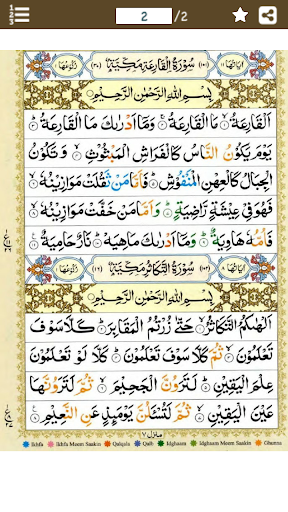 2 /2
اٰیَاتُهَا ۱۱ سُوْرَةُ الْقَارِعَةِ مَكِّيَّةٌ رُكُوْعُهَا ۱
بِسْمِ اللّٰهِ الرَّحْمٰنِ الرَّحِيْمِ
اَلْقَارِعَةُ ۙ مَا الْقَارِعَةُ ۚ وَمَاۤ اَدْرٰىكَ مَا الْقَارِعَةُ ؕ
يَوْمَ يَكُوْنُ النَّاسُ كَالْفَرَاشِ الْمَبْثُوْثِ ۙ وَتَكُوْنُ
الْجِبَالُ كَالْعِهْنِ الْمَنْفُوْشِ ؕ فَاَمَّا مَنْ ثَقُلَتْ مَوَازِيْنُهٗ ۙ
فَهُوَ فِيْ عِيْشَةٍ رَّاضِيَةٍ ؕ وَاَمَّا مَنْ خَفَّتْ مَوَازِيْنُهٗ ۙ
فَاُمُّهٗ هَاوِيَةٌ ؕ وَمَاۤ اَدْرٰىكَ مَا هِيَهْ ؕ نَارٌ حَامِيَةٌ
اٰیَاتُهَا ۸ سُوْرَةُ التَّكَاثُرِ مَكِّيَّةٌ رُكُوْعُهَا ۱
بِسْمِ اللّٰهِ الرَّحْمٰنِ الرَّحِيْمِ
اَلْهٰىكُمُ التَّكَاثُرُ ۙ حَتّٰى زُرْتُمُ الْمَقَابِرَ ؕ كَلَّا سَوْفَ
تَعْلَمُوْنَ ۙ ثُمَّ كَلَّا سَوْفَ تَعْلَمُوْنَ ؕ كَلَّا لَوْ تَعْلَمُوْنَ
عِلْمَ الْيَقِيْنِ ؕ لَتَرَوُنَّ الْجَحِيْمَ ۙ ثُمَّ لَتَرَوُنَّهَا
عَيْنَ الْيَقِيْنِ ۙ ثُمَّ لَتُسْـَٔلُنَّ يَوْمَئِذٍ عَنِ النَّعِيْمِ
منازل ۷
Ikhfa Ikhfa Meem Saakin Qalqala Qalb Idghaam Idghaam Meem Saakin Ghunna